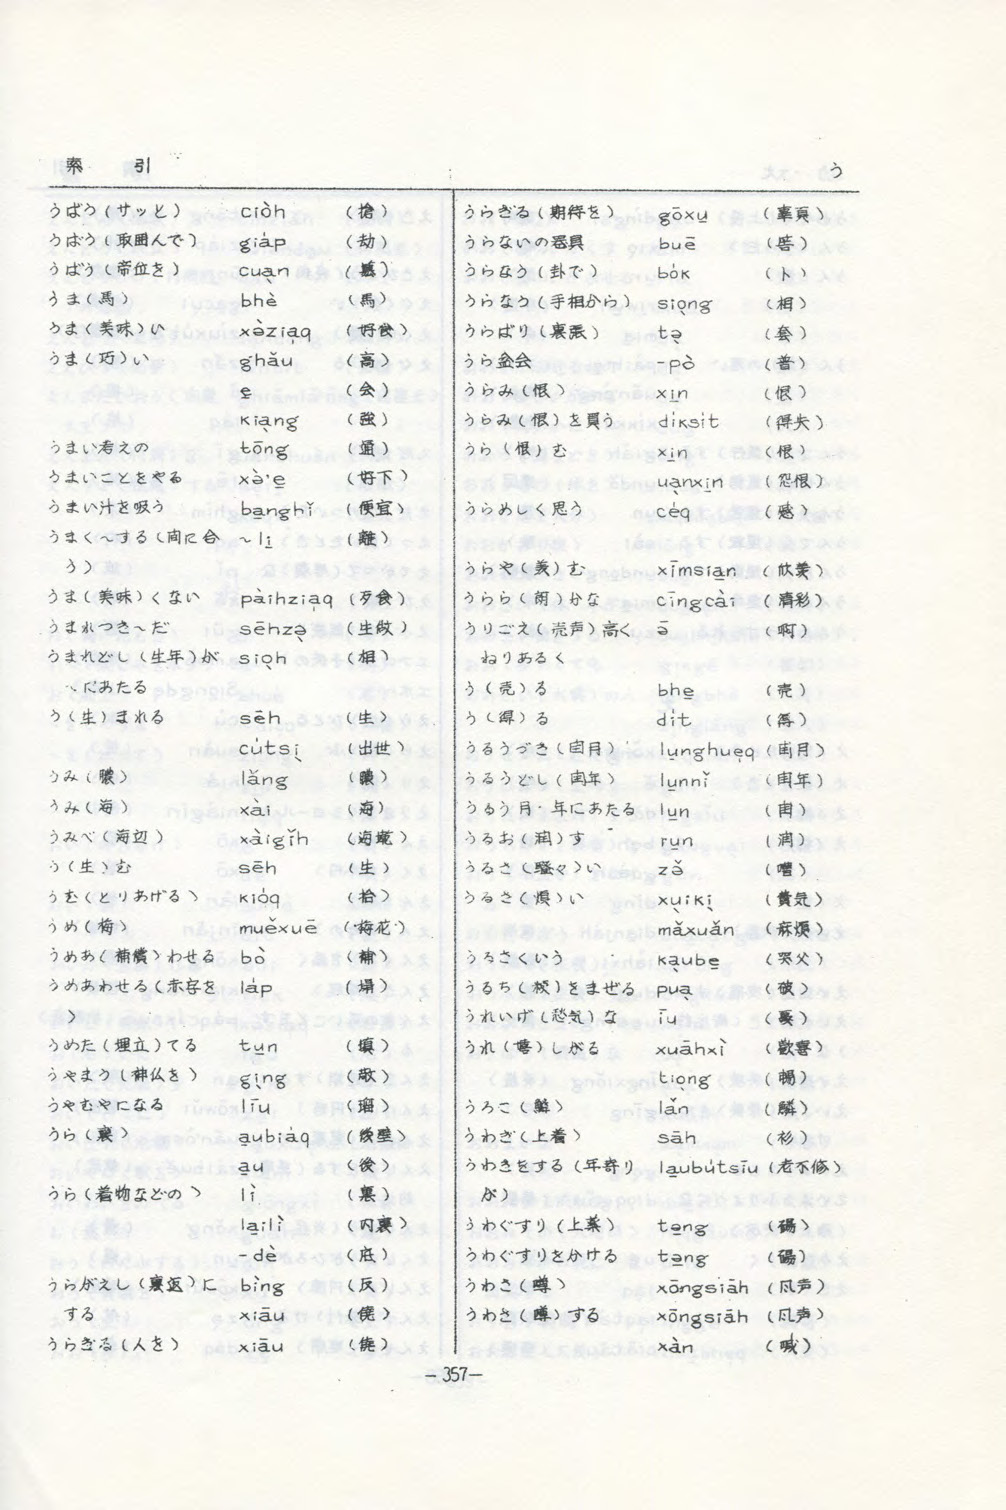 索引
う
うばう(サッと) ciȯh (搶)
うばう(取囲んで) giȧp (劫)
うばう(帝位を) cuạn (簒)
うま(馬) bhè (馬)
うま(美味)い xə̀ziaq (好食)
うま(巧)い ghǎu (高)
e̱ (会)
kiạng (強)
うまい考えの tōng (通)
うまいことをやる xə̀'e̱ (好下)
うまい汁を吸う banghǐ (便宜)
うまく〜する(肉に合 〜li̱ (離)
う)
うま(美味)くない pàihziaq (歹食)
うまれつき〜だ sēhzə̱ (生做)
うまれどし(生年)が sioh (相)
〜にあたる
う(生)まれる sēh (生)
cu̍tsị (出世)
うみ(膿) lǎng (膿)
うみ(海) xài (海)
うみべ(海辺) xàigǐh (海墘)
う(生)む sēh (生)
うむ(とりあげる) kiȯq (拾)
うめ(梅) muěxuē (梅花)
うめあ(補償)わせる bò (補)
うめあわせる(赤字を la̍p (塌)
)
うめた(埋立)てる tu̱n (填)
うやまう(神仏を) gịng (敬)
うやむやになる līu (溜)
うら(裏) a̱ubiáq (後壁)
a̱u (後)
うら(着物などの) lì (裏)
lailì (内裏)
-dè (底)
うらがえし(裏返)に bìng (反)
する xiāu (僥)
うらぎる(人を) xiāu (僥)
うらぎる(期待を) gōxu̱ (辜負)
うらないの器具 buē (筶)
うらなう(卦で) bȯk (卜)
うらなう(手相から) siọng (相)
うらばり(裏張) tə̣ (套)
うら盆会 -pò (普)
うらみ(恨) xi̱n (恨)
うらみ(恨)を買う diksi̍t (得失)
うら(恨)む xi̱n (恨)
uạnxi̱n (怨恨)
うらめしく思う cėq (慼)
うらや(羨)む xīmsiạn (欣羨)
うらら(朗)かな cīngcài (清彩)
うりごえ(売声)高く ə̄ (啊)
ねりあるく
う(売)る bhe̱ (売)
う(得)る di̍t (得)
うるうづき(閏月) lu̱nghueq (閏月)
うるうどし(閏年) lu̱nnǐ (閏年)
うるう月·年にあたる lu̱n (閏)
うるお(潤)す ru̱n (潤)
うるさ(騒々)い zə̌ (嘈)
うるさ(煩)い xùikị (費気)
mǎxuǎn (麻煩)
うるさくいう kạube̱ (哭父)
うるち(粳)をまぜる puạ (破)
うれいげ(愁気)な īu (憂)
うれ(嬉)しがる xuāhxì (歓喜)
tiọng (暢)
うろこ(鱗) lǎn (鱗)
うわぎ(上着) sāh (衫)
うわきをする(年寄り la̱ubu̍tsīu (老不修)
が)
うわぐすり(上薬) tə̱ng (碭)
うわぐすりを分ける tə̱ng (碭)
うわさ(噂) xōngsiāh (風声)
うわさ(噂)する xōngsiāh (風声)
xàn (喊)
-357-